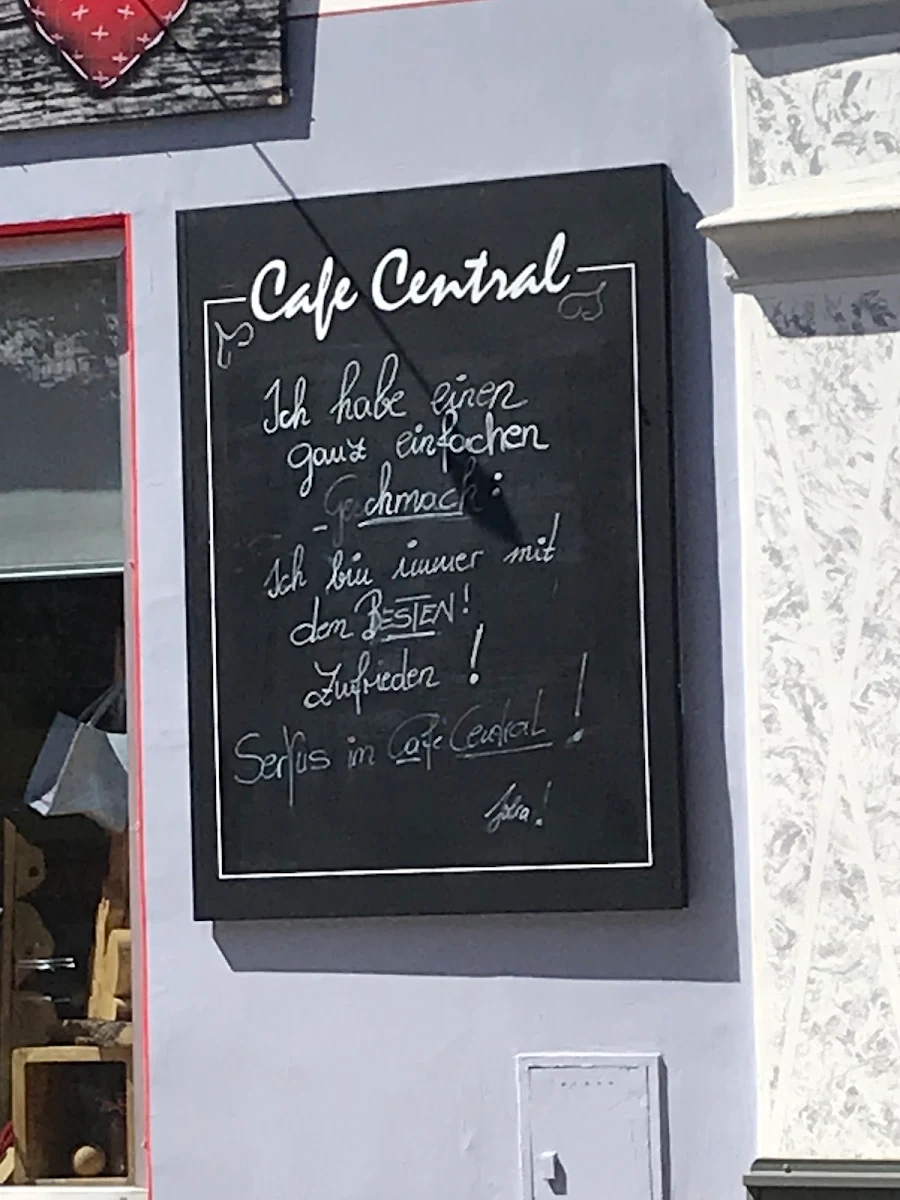 Cafe Central
Ich habe einen
ganz einfachen
- Geschmack:
Ich bin immer mit
dem BESTEN!
Zufrieden !
Servus im Café Central !